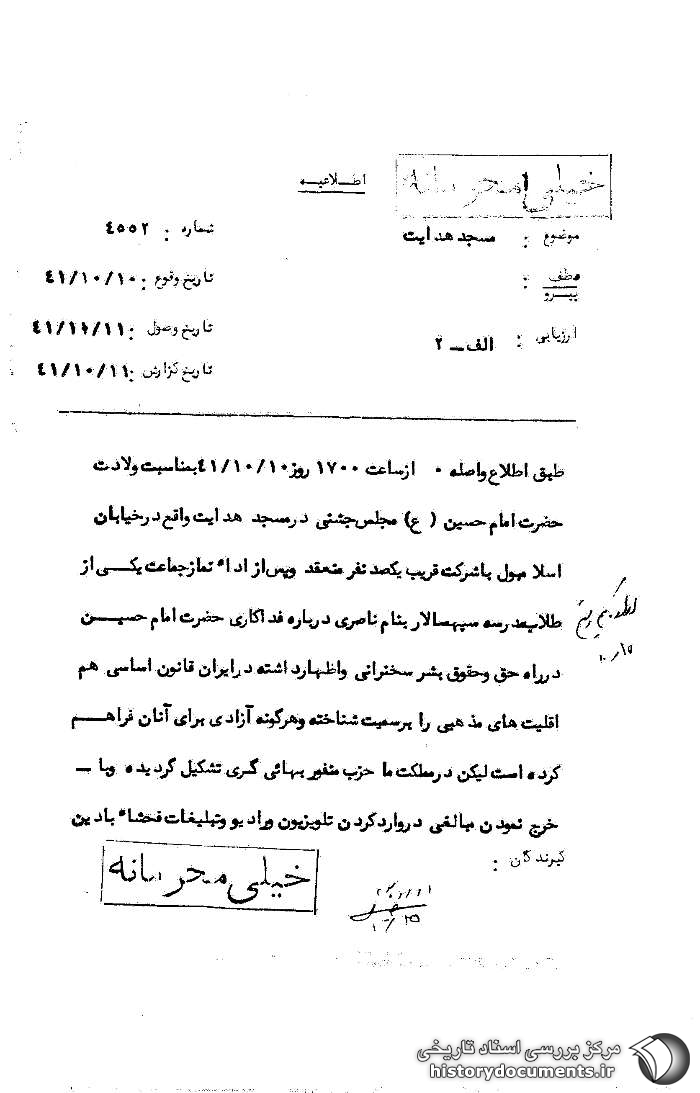 خیلی محرمانه
اطلاعیه
موضوع : مسجد هدایت
شماره : ٤٥٥٢
عطف :
پیرو
تاریخ وقوع : ٤١/١٠/١٠
ارزیابی : الف ــ ٢
تاریخ وصول : ٤١/١٠/١١
تاریخ گزارش : ٤١/١٠/١١
طبق اطلاع واصله ٠ از ساعت ١٧٠٠ روز ٤١/١٠/١٠ بمناسبت ولادت
حضرت امام حسین ( ع) مجلس جشنی در مسجد هدایت واقع در خیابان
اسلامبول با شرکت قریب یکصد نفر منعقد وپس از اداء نماز جماعت یکی از
طلاب مدرسه سپهسالار بنام ناصری درباره فداکاری حضرت امام حسین
در راه حق وحقوق بشر سخنرانی واظهار داشته در ایران قانون اساسی هم
اقلیت های مذهبی را برسمیت شناخته وهرگونه آزادی برای آنان فراهم
کرده است لیکن در مملکت ما حزب منفور بهائی گری تشکیل گردیده وبا ــ
خرج نمودن مبالغی در وارد کردن تلویزیون ورادیو وتبلیغات فحشاء بادین
گیرندگان :
خیلی محرمانه
مرکز بررسی اسناد تاریخی
historydocuments.ir